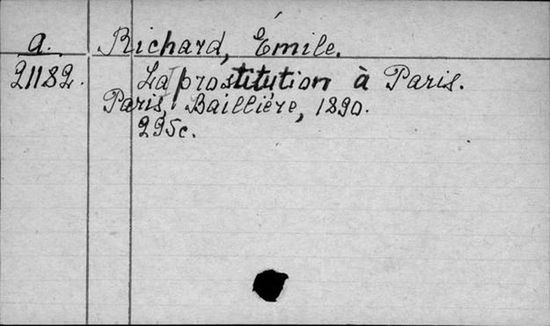 a. Richard, Émile.
21182. La prostitution à Paris.
Paris, Baillière, 1890.
295c.